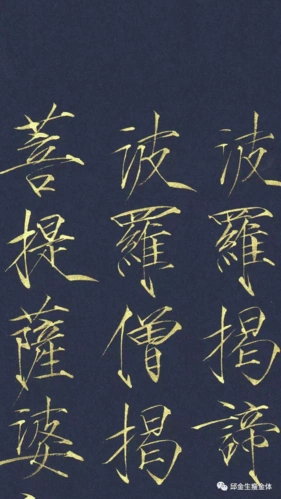 波羅揭諦
波羅僧揭
菩提薩婆
邱金生瘦金体